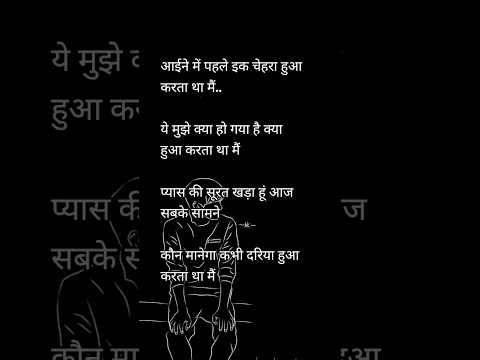 आईने में पहले इक चेहरा हुआ
करता था मैं..
ये मुझे क्या हो गया है क्या
हुआ करता था मैं
प्यास की सूरत खड़ा हूं आज
सबके सामने
कौन मानेगा कभी दरिया हुआ
करता था मैं